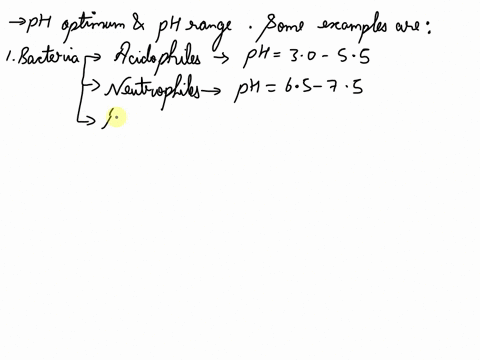 → pH optimum & pH range. Some examples are:
1. Bacteria → Acidophiles → pH = 3.0 - 5.5
→ Neutrophiles → pH = 6.5 - 7.5
→